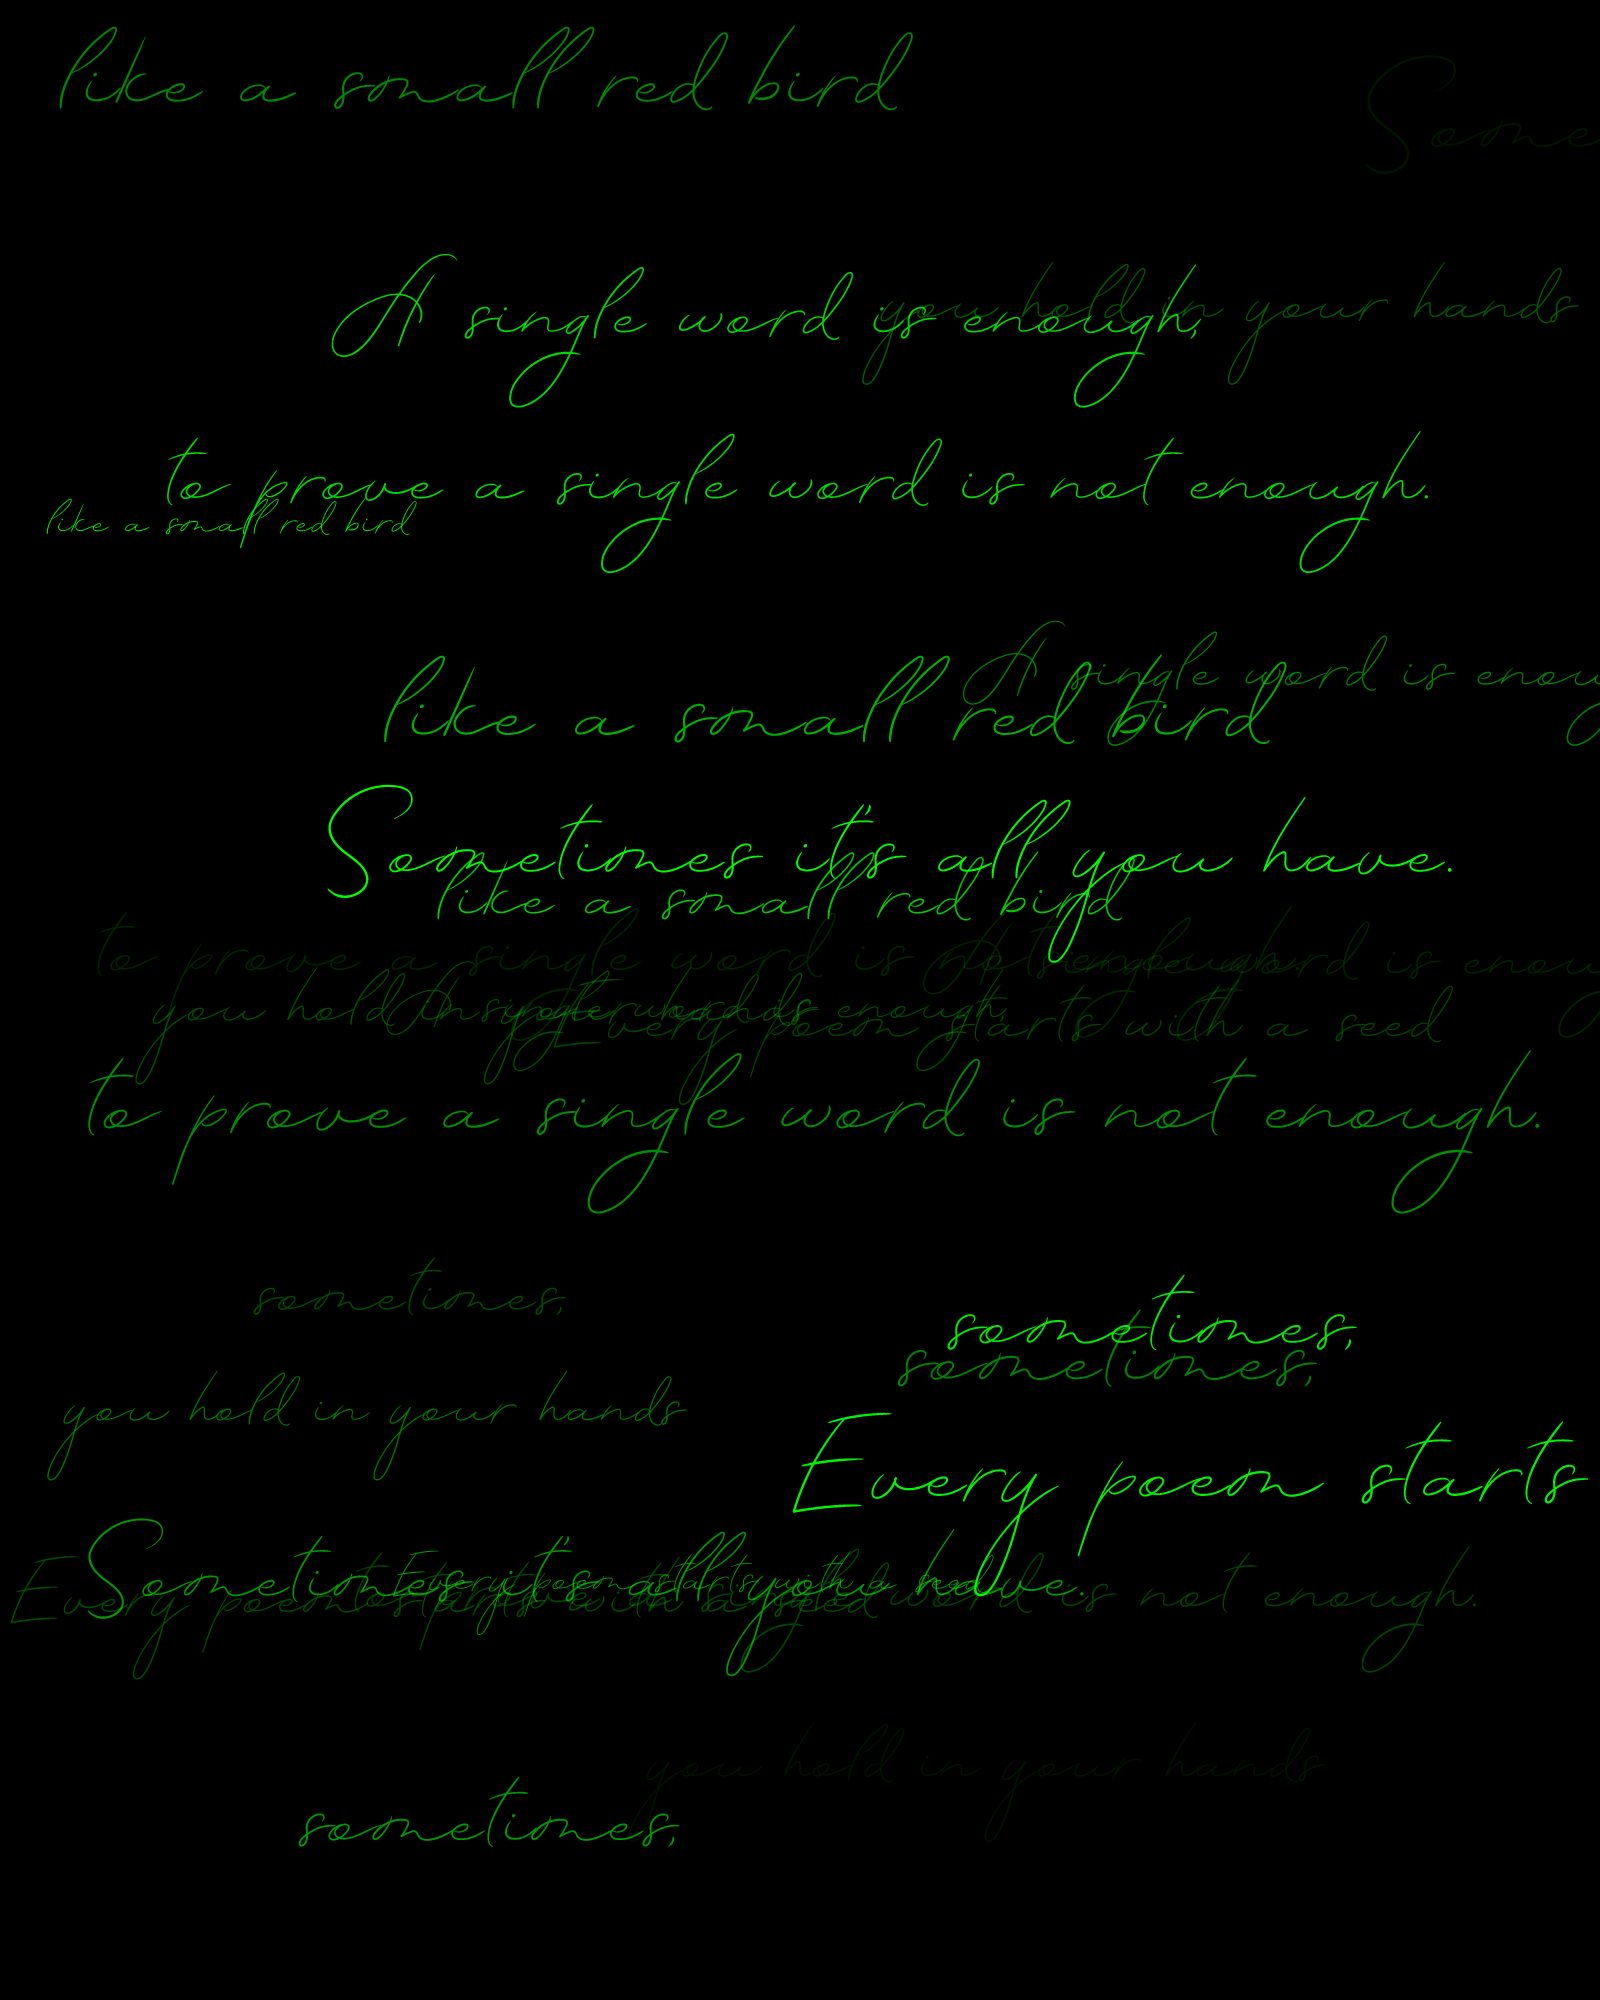 like a small red bird
Some
you hold in your hands
A single word is enough,
to prove a single word is not enough.
like a small red bird
A single word is enoug
like a small red bird
Sometimes it's all you have.
like a small red bird
to prove a single word is not enough.
A single word is enoug
you hold in your hands
A single word is enough,
Every poem starts with a seed
to prove a single word is not enough.
sometimes,
sometimes,
sometimes,
you hold in your hands
Every poem starts
Sometimes it's all you have.
Every poem starts with a seed
Every poem starts with a seed
to prove a single word is not enough.
you hold in your hands
sometimes,